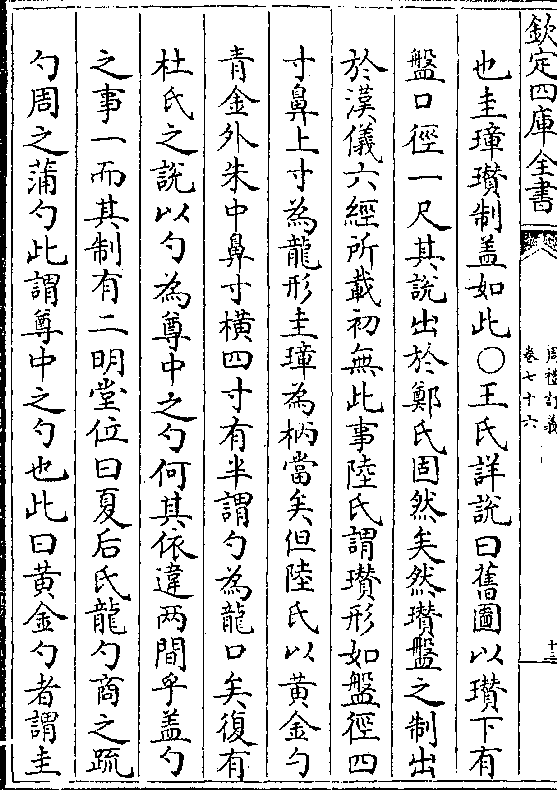 欽定四庫全書
周禮訂義
卷七十六
十三
也圭璋瓚制盖如此〇王氏詳說曰舊圖以瓚下有
盤口徑一尺其說出於鄭氏固然矣然瓚盤之制出
於漢儀六經所載初無此事陸氏謂瓚形如盤徑四
寸鼻上寸為龍形圭璋為柄當矣但陸氏以黃金勺
青金外朱中鼻寸橫四寸有半謂勺為龍口矣復有
杜氏之說以勺為尊中之勺何其依違两間乎盖勺
之事一而其制有二明堂位曰夏后氏龍勺商之䟽
勺周之蒲勺此謂尊中之勺也此曰黃金勺者謂圭